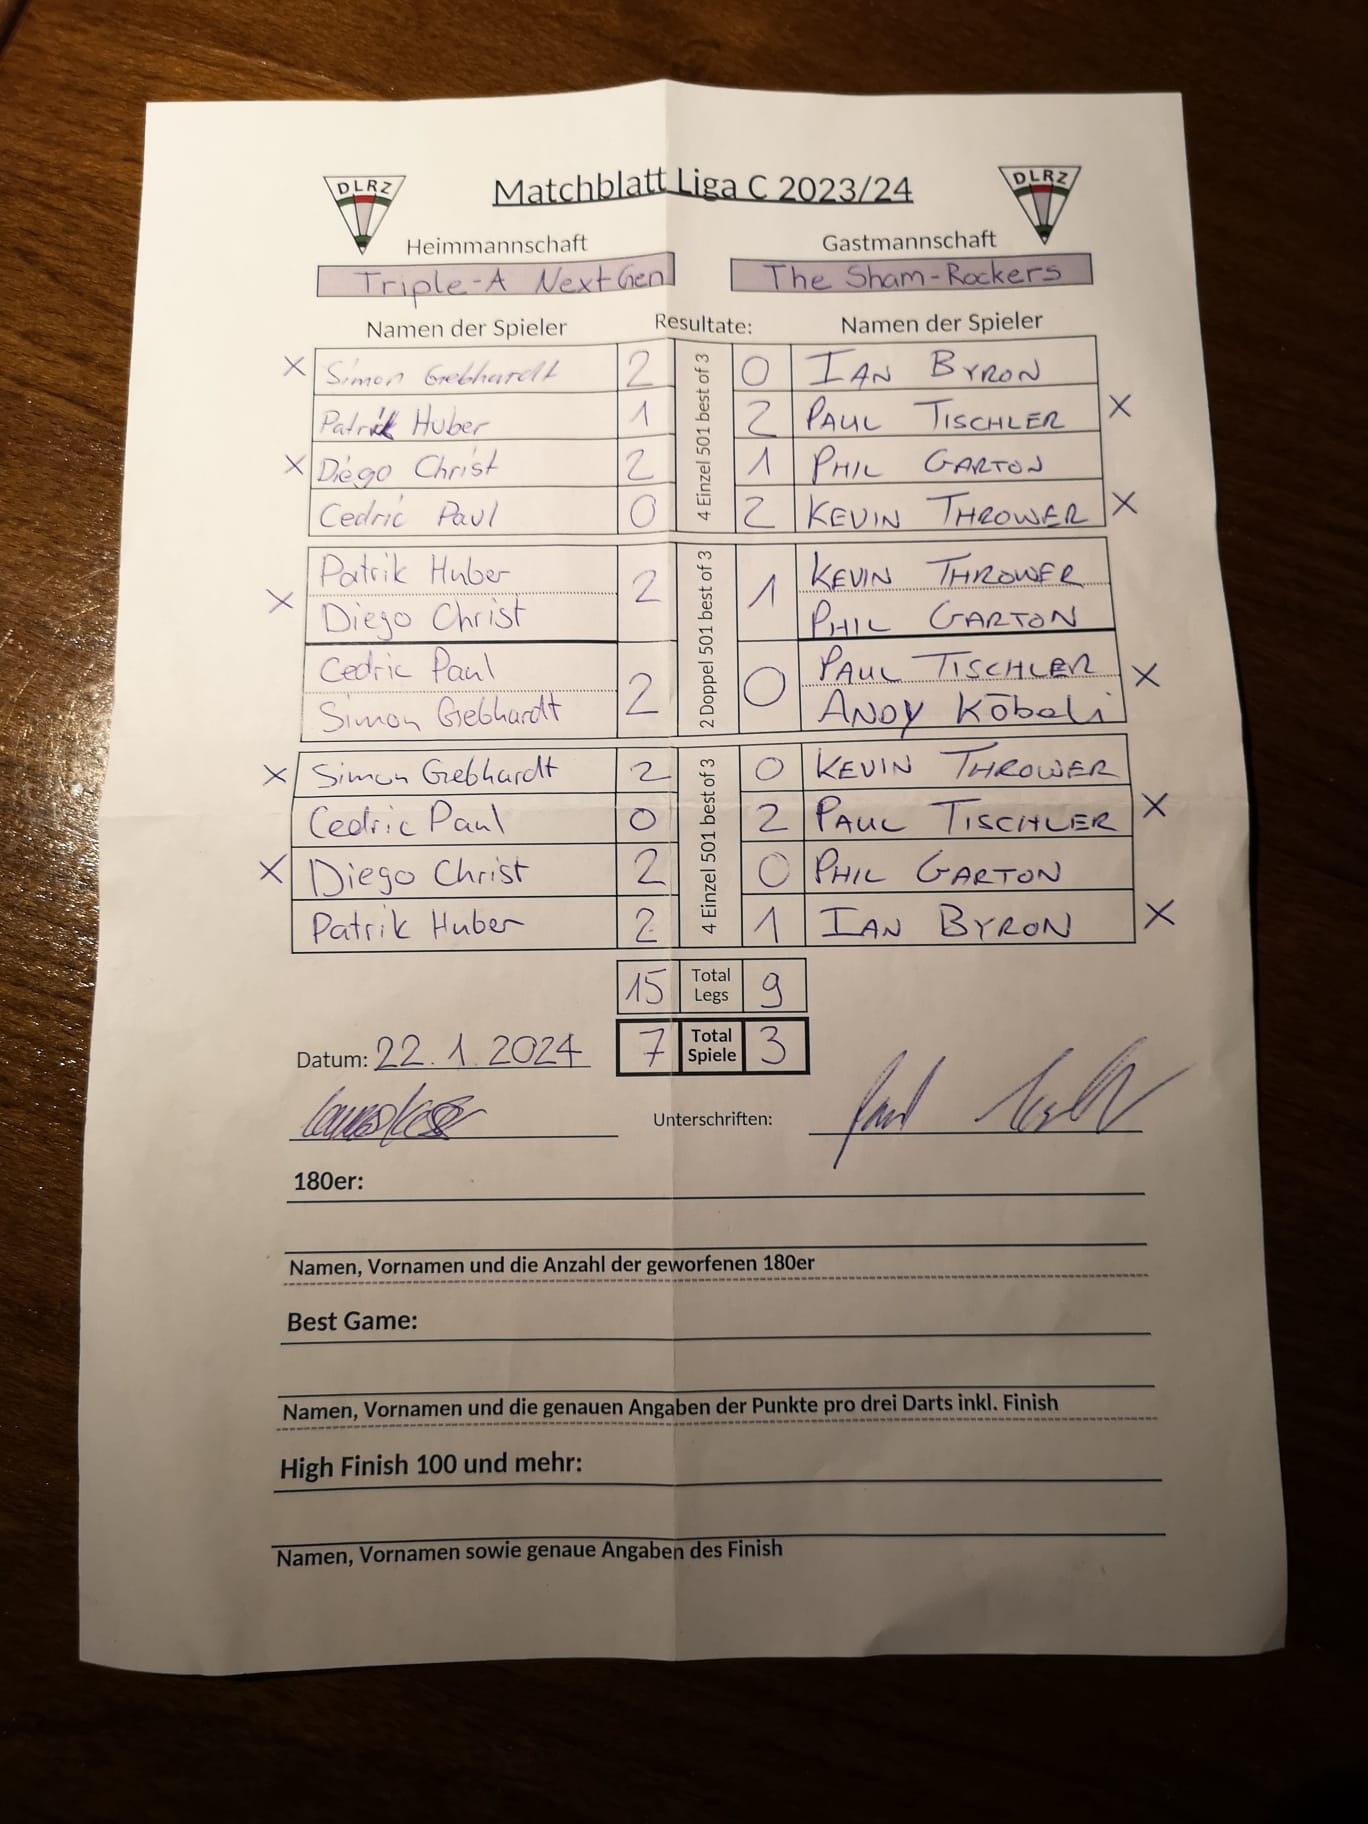 DLRZ Matchblatt Liga C 2023/24 DLRZ
Heimmannschaft Gastmannschaft
Triple-A NextGen The Sham-Rockers
Namen der Spieler Resultate: Namen der Spieler
X Simon Gebhardt 2 0 IAN BYRON
Patrik Huber 1 2 PAUL TISCHLER X
X Diego Christ 2 1 PHIL GARTON
Cedric Paul 0 2 KEVIN THROWER X
4 Einzel 501 best of 3
Patrik Huber KEVIN THROWER
X Diego Christ 2 1 PHIL GARTON
Cedric Paul PAUL TISCHLER
Simon Gebhardt 2 0 ANDY Köbeli X
2 Doppel 501 best of 3
X Simon Gebhardt 2 0 KEVIN THROWER
Cedric Paul 0 2 PAUL TISCHLER X
X Diego Christ 2 0 PHIL GARTON
Patrik Huber 2 1 IAN BYRON X
4 Einzel 501 best of 3
15 Total Legs 9
Datum: 22.1.2024 7 Total Spiele 3
Unterschriften:
180er:
Namen, Vornamen und die Anzahl der geworfenen 180er
Best Game:
Namen, Vornamen und die genauen Angaben der Punkte pro drei Darts inkl. Finish
High Finish 100 und mehr:
Namen, Vornamen sowie genaue Angaben des Finish